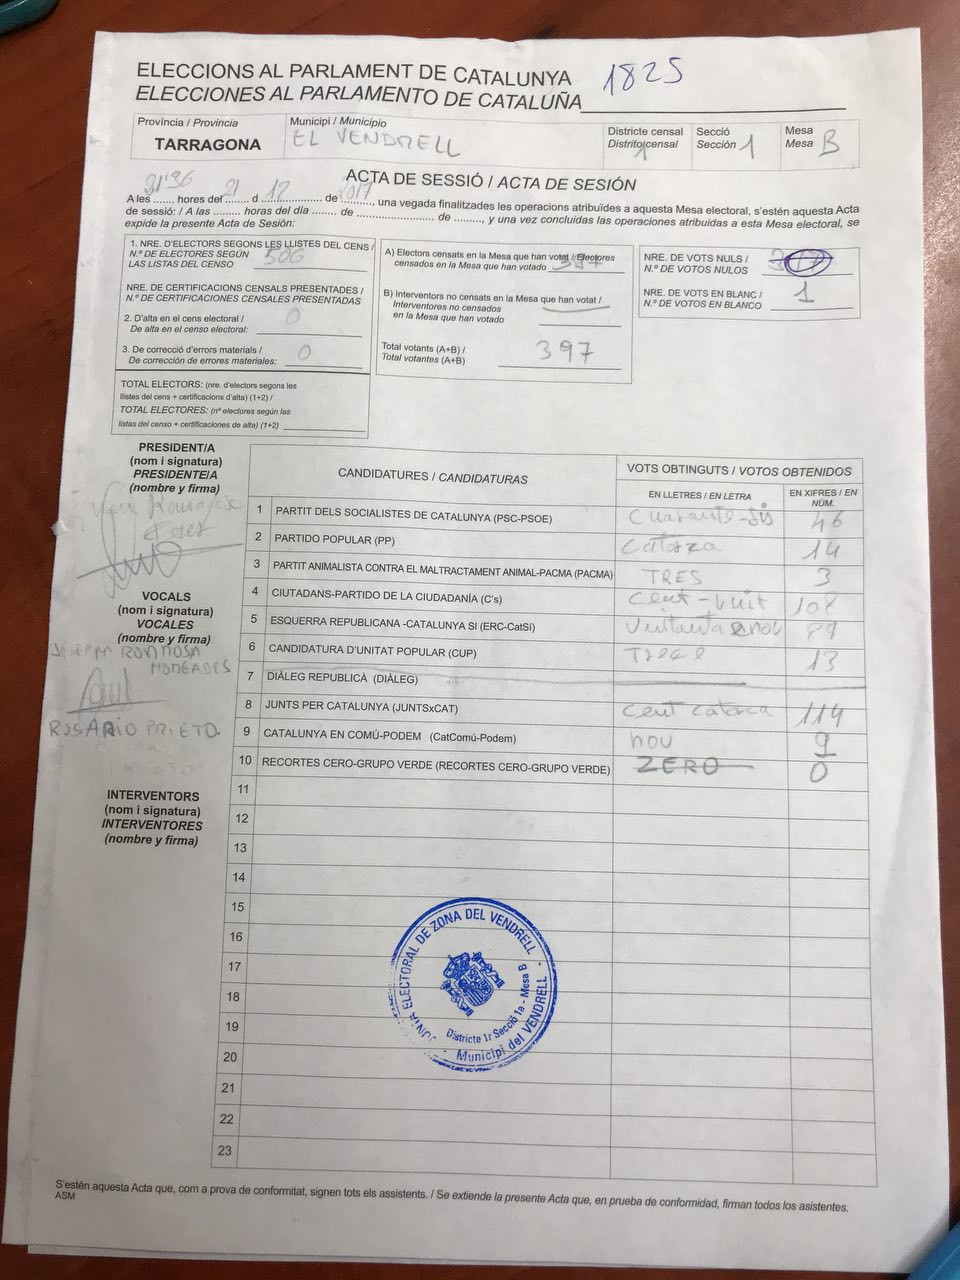 ELECCIONS AL PARLAMENT DE CATALUNYA 1825
ELECCIONES AL PARLAMENTO DE CATALUÑA
Província / Provincia
TARRAGONA
Municipi / Municipio
EL VENDRELL
Districte censal
Distrito censal
1
Secció
Sección 1
Mesa
Mesa B
ACTA DE SESSIÓ / ACTA DE SESIÓN
A les 21'36 hores del 21 d 12 de 2017, una vegada finalitzades les operacions atribuïdes a aquesta Mesa electoral, s'estén aquesta Acta
de sessió: / A las ........ horas del día ........ de ........................ de ........, y una vez concluidas las operaciones atribuidas a esta Mesa electoral, se
expide la presente Acta de Sesión:
1. NRE. D'ELECTORS SEGONS LES LLISTES DEL CENS /
N.º DE ELECTORES SEGÚN
LAS LISTAS DEL CENSO 506
NRE. DE CERTIFICACIONS CENSALS PRESENTADES /
N.º DE CERTIFICACIONES CENSALES PRESENTADAS
2. D'alta en el cens electoral /
De alta en el censo electoral: 0
3. De correcció d'errors materials /
De corrección de errores materiales: 0
TOTAL ELECTORS: (nre. d'electors segons les
llistes del cens + certificacions d'alta) (1+2) /
TOTAL ELECTORES: (nº electores según las
listas del censo + certificaciones de alta) (1+2)
A) Electors censats en la Mesa que han votat / Electores
censados en la Mesa que han votado 397
B) Interventors no censats en la Mesa que han votat /
Interventores no censados
en la Mesa que han votado
Total votants (A+B) /
Total votantes (A+B) 397
NRE. DE VOTS NULS /
N.º DE VOTOS NULOS
NRE. DE VOTS EN BLANC /
N.º DE VOTOS EN BLANCO 1
PRESIDENT/A
(nom i signatura)
PRESIDENTE/A
(nombre y firma)
VOCALS
(nom i signatura)
VOCALES
(nombre y firma)
ROSARIO PRIETO
INTERVENTORS
(nom i signatura)
INTERVENTORES
(nombre y firma)
CANDIDATURES / CANDIDATURAS
VOTS OBTINGUTS / VOTOS OBTENIDOS
EN LLETRES / EN LETRA
EN XIFRES / EN NÚM.
1 PARTIT DELS SOCIALISTES DE CATALUNYA (PSC-PSOE) Cuaranta-sis 46
2 PARTIDO POPULAR (PP) Catorza 14
3 PARTIT ANIMALISTA CONTRA EL MALTRACTAMENT ANIMAL-PACMA (PACMA) TRES 3
4 CIUTADANS-PARTIDO DE LA CIUDADANÍA (C's) Cent-vuit 108
5 ESQUERRA REPUBLICANA -CATALUNYA SÍ (ERC-CatSí) 89
6 CANDIDATURA D'UNITAT POPULAR (CUP) Tretze 13
7 DIÀLEG REPUBLICÀ (DIÀLEG)
8 JUNTS PER CATALUNYA (JUNTSxCAT) Cent catorza 114
9 CATALUNYA EN COMÚ-PODEM (CatComú-Podem) nou 9
10 RECORTES CERO-GRUPO VERDE (RECORTES CERO-GRUPO VERDE) ZERO 0
11
12
13
14
15
16
17
18
19
20
21
22
23
JUNTA ELECTORAL DE ZONA DEL VENDRELL -
Districte 1r Secció 1a - Mesa B
- Municipi del VENDRELL
S'estén aquesta Acta que, com a prova de conformitat, signen tots els assistents. / Se extiende la presente Acta que, en prueba de conformidad, firman todos los asistentes.
ASM